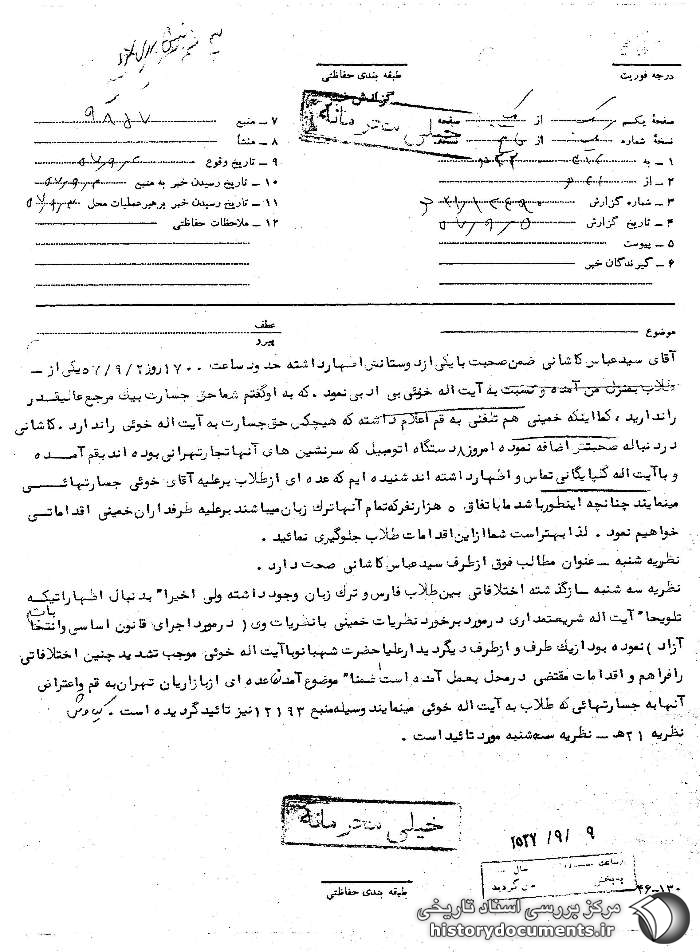 درجه فوریت
طبقه بندی حفاظتی
گزارش خبر
خیلی محرمانه
صفحهٔ یکم از صفحه
نسخهٔ شماره از نسخه
۱ ـ به
۲ ـ از
۳ ـ شماره گزارش
۴ ـ تاریخ گزارش ۵۷/۹/۵
۵ ـ پیوست
۶ ـ گیرندگان خبر
۷ ـ منبع ۹۸۵۷
۸ ـ منشأ
۹ ـ تاریخ وقوع ۵۷/۹/۲
۱۰ ـ تاریخ رسیدن خبر به منبع
۱۱ ـ تاریخ رسیدن خبر برهبر عملیات محل ۵۷/۹/۳
۱۲ ـ ملاحظات حفاظتی
موضوع
عطف
پیرو
آقای سیدعباس کاشانی ضمن صحبت با یکی از دوستانش اظهار داشته حدود ساعت ۱۷۰۰ روز ۵۷/۹/۲ یکی از ـ
طلاب بمنزل من آمده و نسبت به آیت اله خوئی بی ادبی نمود . که به او گفتم شما حق جسارت بیک مرجع عالیقدر
را ندارید ، کما اینکه خمینی هم تلفنی به قم اعلام داشته که هیچکس حق جسارت به آیت اله خوئی را ندارد . کاشانی
در دنباله صحبتش اضافه نموده امروز ۸ دستگاه اتومبیل که سرنشین های آنها تجار تهرانی بوده اند بقم آمده
و با آیت اله گلپایگانی تماس و اظهار داشته اند شنیده ایم که عده ای از طلاب برعلیه آقای خوئی جسارتهائی
مینمایند چنانچه اینطور باشد ما با تفاق ۵ هزار نفر که تمام آنها ترک زبان میباشند برعلیه طرفداران خمینی اقداماتی
خواهیم نمود . لذا بهتر است شما از این اقدامات طلاب جلوگیری نمائید .
نظریه شنبه ـ عنوان مطالب فوق از طرف سیدعباس کاشانی صحت دارد .
نظریه سه شنبه ـ از گذشته اختلافاتی بین طلاب فارس و ترک زبان وجود داشته ولی اخیرا" بدنبال اظهاراتیکه
تلویحا" آیت اله شریعتمداری در مورد برخورد نظریات خمینی با نظریات وی ( در مورد اجرای قانون اساسی و انتخابات
آزاد ) نموده بود از یک طرف و از طرف دیگر دیدار علیاحضرت شهبانو با آیت اله خوئی موجب تشدید چنین اختلافاتی
را فراهم و اقدامات مقتضی در محل بعمل آمده است ضمنا" موضوع آمدن عده ای از بازاریان تهران به قم و اعتراض
آنها به جسارتهائی که طلاب به آیت اله خوئی مینمایند وسیله منبع ۱۲۱۹۳ نیز تائید گردیده است . کیاوش
نظریه ۲۱ هـ ـ نظریه سه شنبه مورد تائید است .
خیلی محرمانه
۲۵۳۷ /۹/ ۹
طبقه بندی حفاظتی
۴۶-۱۳۰
مرکز بررسی اسناد تاریخی
historydocuments.ir